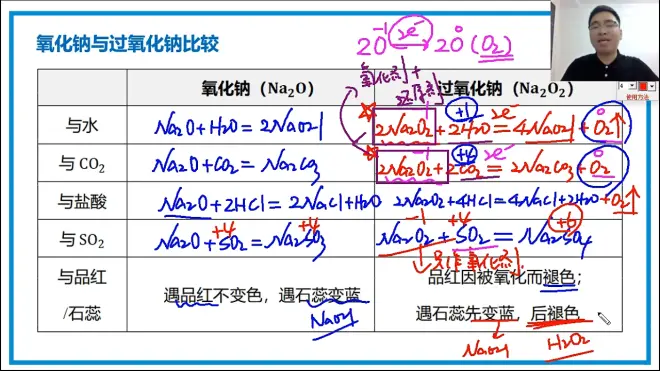 氧化钠与过氧化钠比较
2O⁻¹ 2e⁻ 2O⁰ (O₂)
氧化剂+
还原剂
氧化钠（Na₂O） 过氧化钠（Na₂O₂）
与水 Na2O+H2O=2NaOH 2Na2O2+2H2O=4NaOH+O2↑
-1 +1 2e⁻ 0
与CO₂ Na2O+CO2=Na2CO3 2Na2O2+2CO2=2Na2CO3+O2
+4 2e⁻ 0
与盐酸 Na2O+2HCl=2NaCl+H2O 2Na2O2+4HCl=4NaCl+2H2O+O2↑
与SO₂ Na2O+SO2=Na2SO3 Na2O2+SO2=Na2SO4
+4 +4 -1 +4 +6
只作氧化剂
与品红
/石蕊
遇品红不变色，遇石蕊变蓝
NaOH
品红因被氧化而褪色；
遇石蕊先变蓝，后褪色
NaOH H2O2
4
使用方法